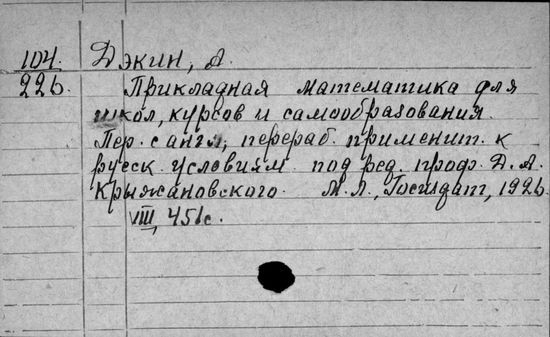 104. Дэкин, А.
226. Прикладная математика для
школ, курсов и самообразования.
Пер. с англ., перераб. применит. к
русск. условиям под ред. проф. Д. А.
Крыжановского. М.Л., Госиздат, 1926.
VIII, 451с.